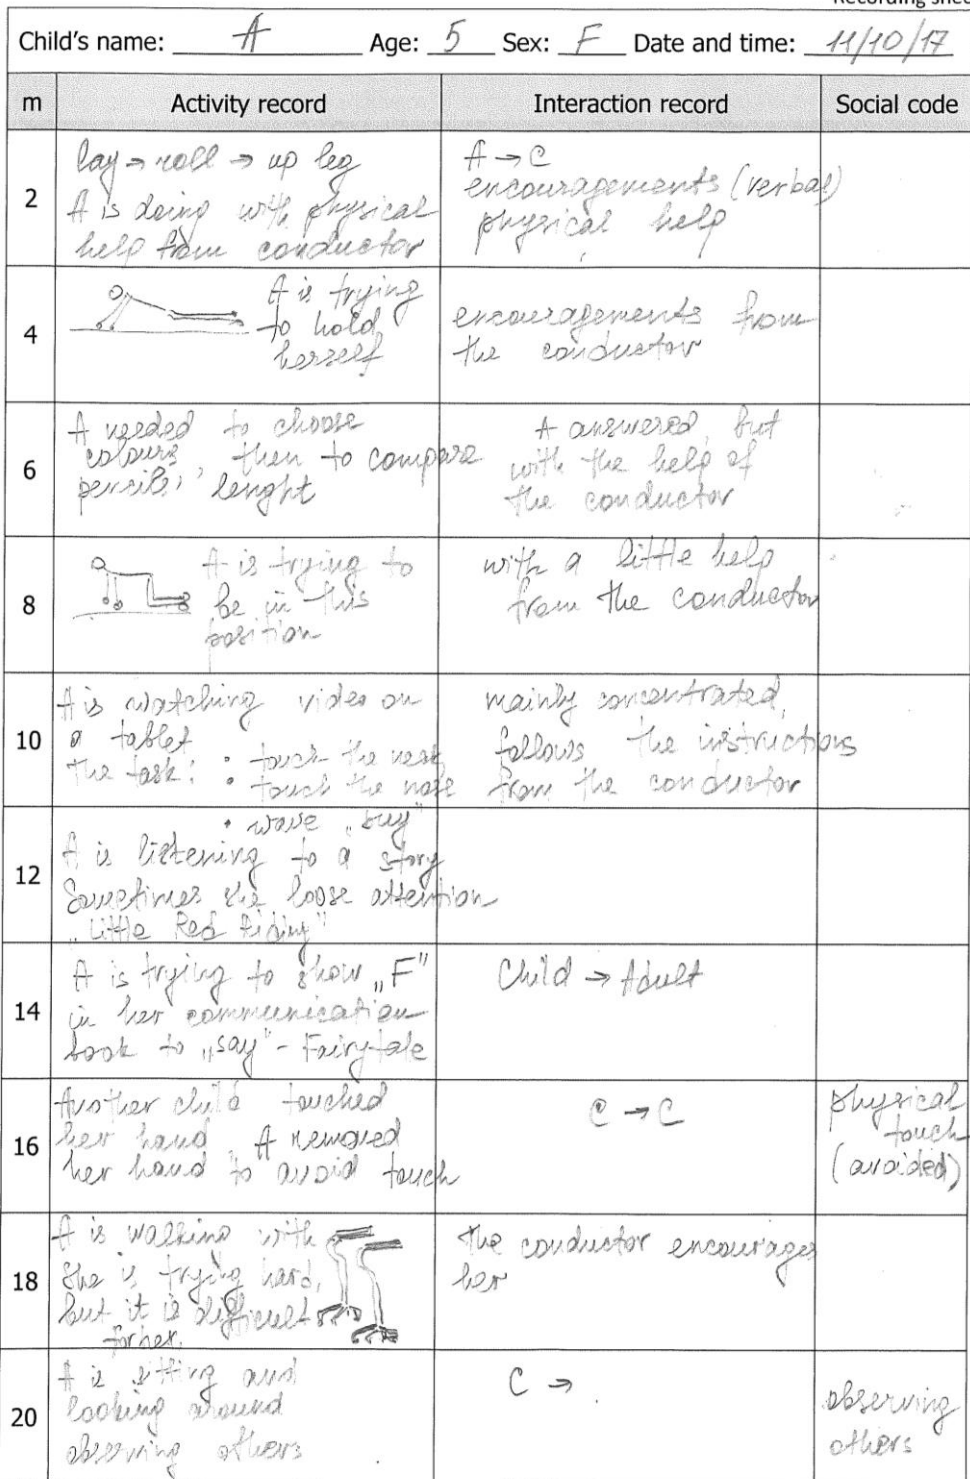 Recording shee
Child's name: A Age: 5 Sex: F Date and time: 11/10/17
m Activity record Interaction record Social code
2
lay → roll → up leg
A is doing with physical
help from conductor
A → C
encouragements (verbal)
physical help
4
A is trying
to hold
herself
encouragements from
the conductor
6
A needed to choose
colours, then to compare
pencils' lenght
A answered, but
with the help of
the conductor
8
A is trying to
be in this
position
with a little help
from the conductor
10
A is watching video on
a tablet
the task: • touch the neak
• touch the nose
• wave „buy"
mainly concentrated,
follows the instructions
from the conductor
12
A is listening to a story
Sometimes she loose attention
„Little Red Riding"
14
A is trying to show „F"
in her communication
book to „say" - Fairytale
Child → Adult
16
Another child touched
her hand. A removed
her hand to avoid touch
C → C
physical
touch
(avoided)
18
A is walking with
She is trying hard,
but it is difficult
for her.
The conductor encourages
her
20
A is sitting and
looking around
observing others
C →
observing
others